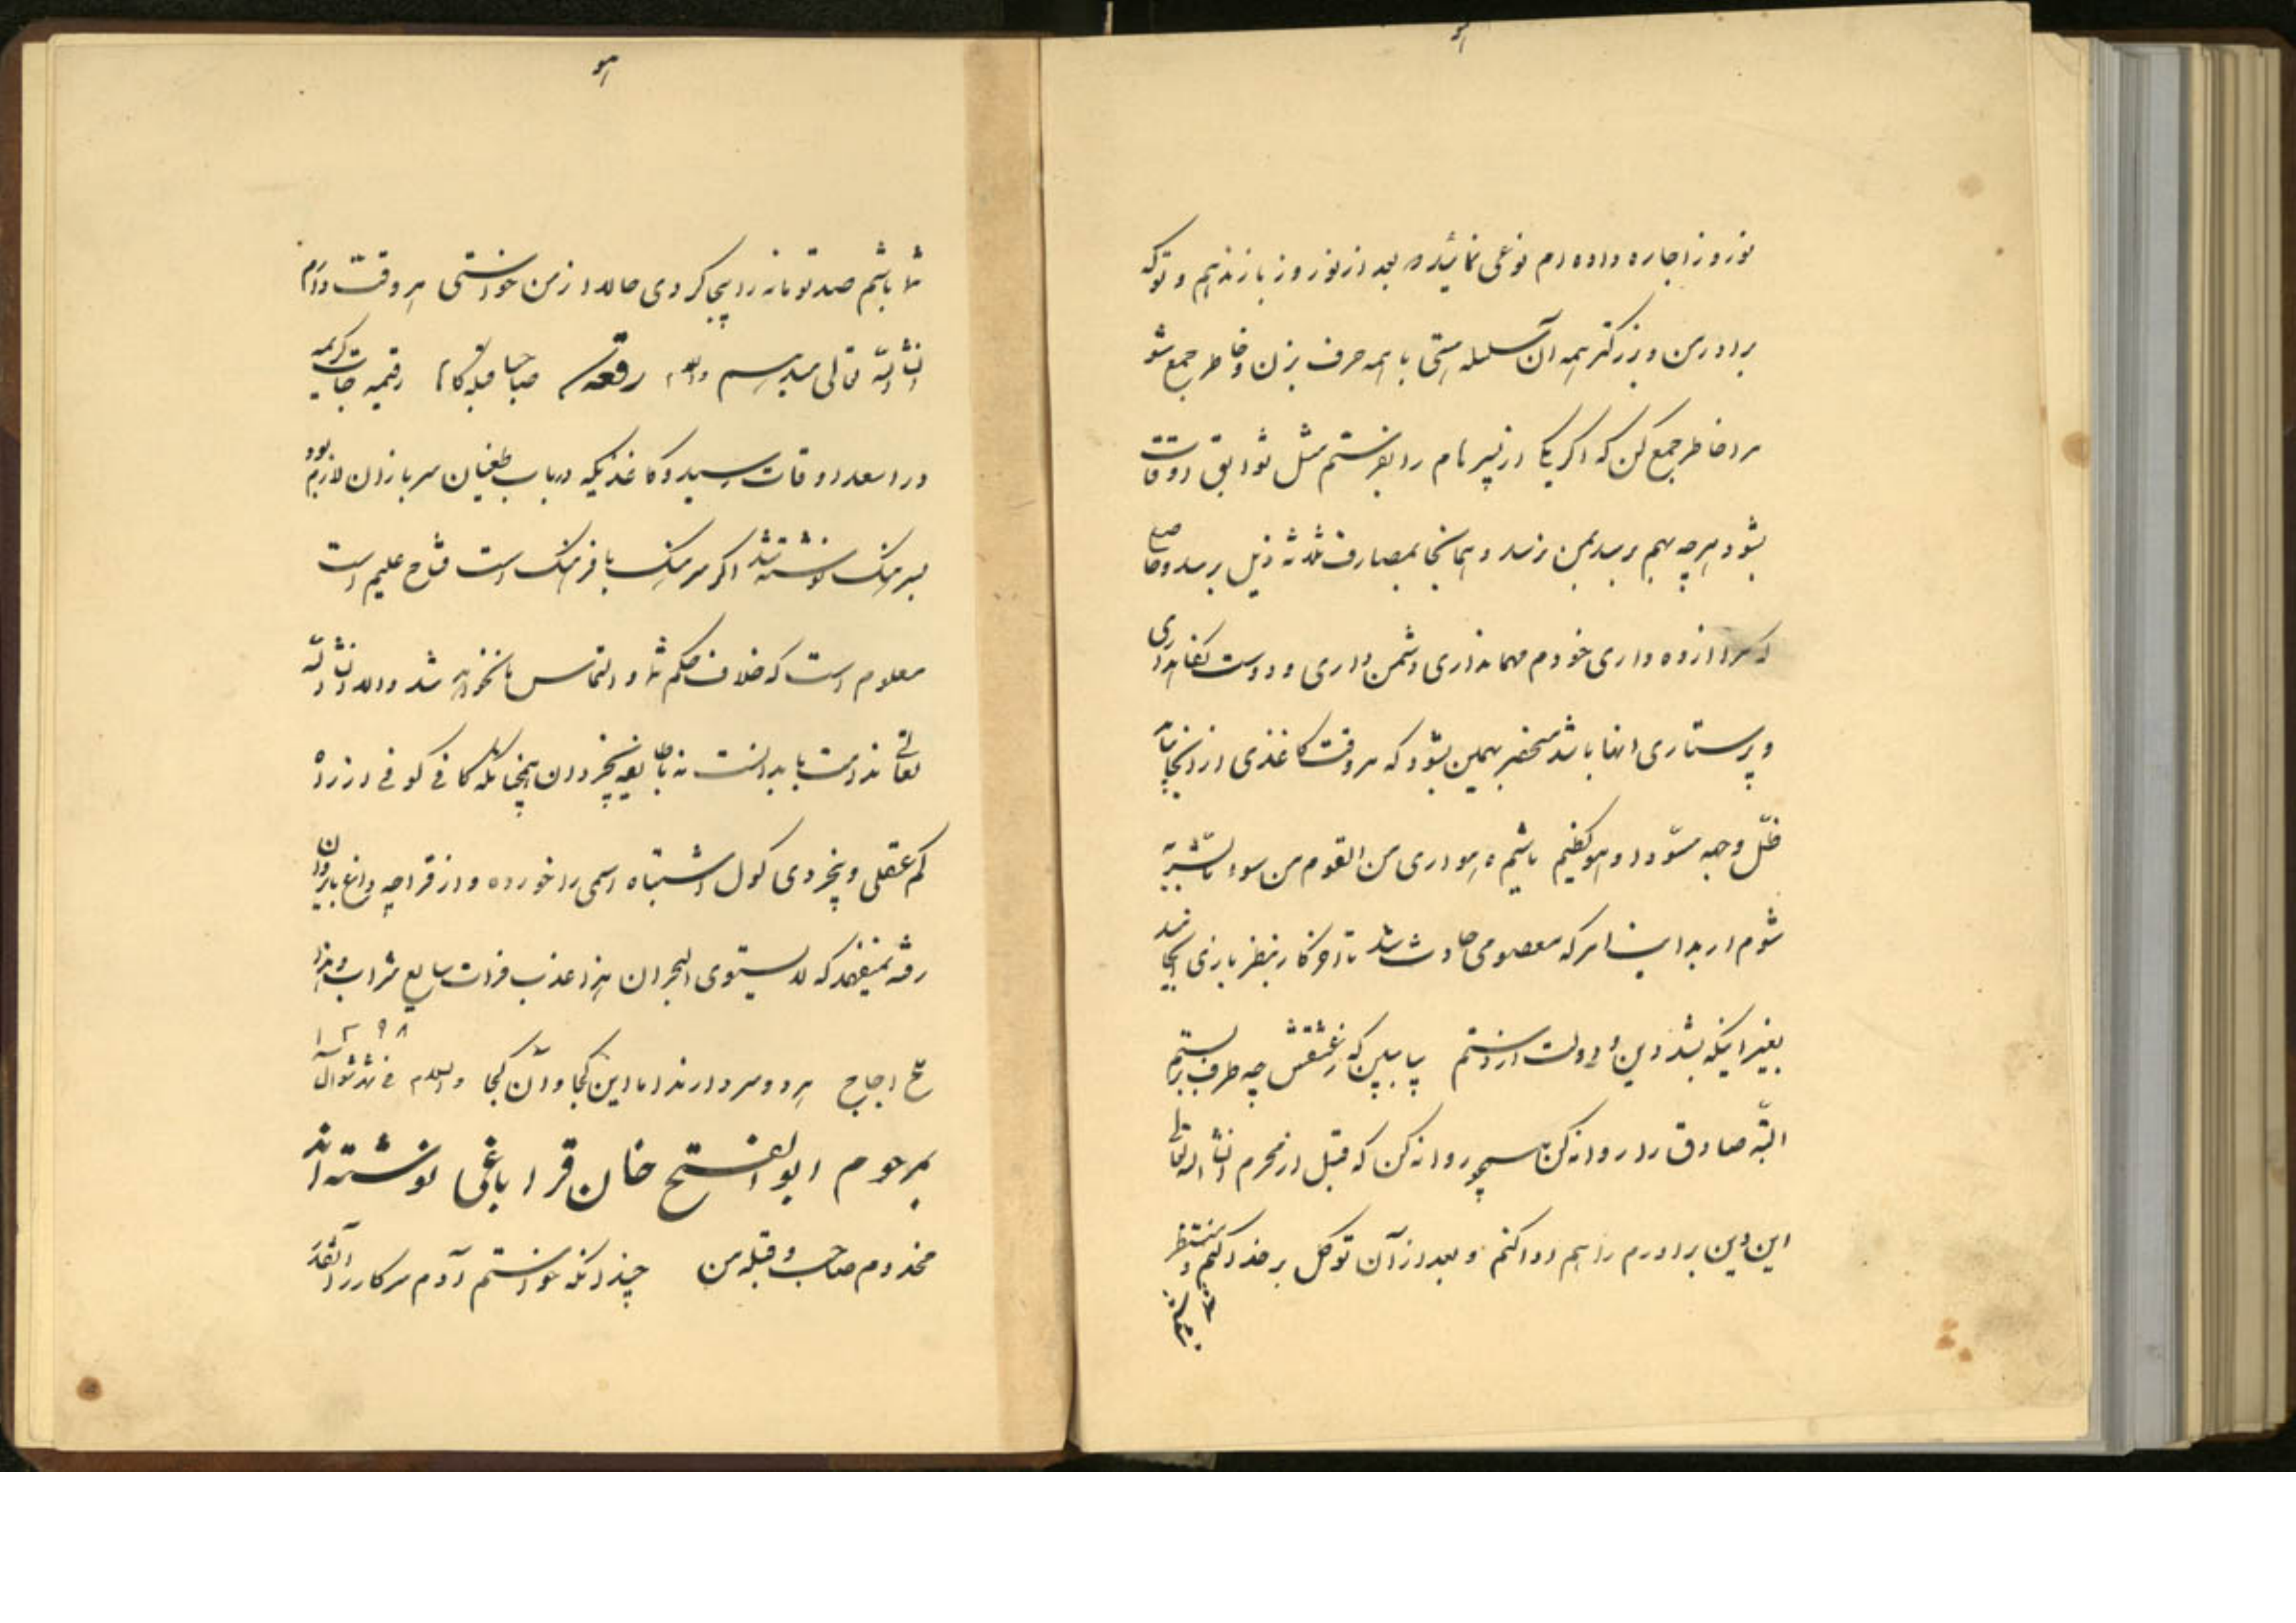 هو
نوروز اجاره داده‌ام نوعی نمائید که بعد از نوروز باز ندهیم و تو که
برادر من و بزرگتر همه آن سلسله هستی با همه حرف بزن و خاطر جمع شو
مرا خاطر جمع کن که اگر یکی از پسرهام را بفرستم مثل سوابق اوقات
بشود هرچه بهم رسد بمن نرسد و همانجا بمصارف ثلاثه ذیل برسد و حاصل
داری خودم مهمانداری دشمن داری و دوست نگاهداری
و پرستاری آنها باشد منحصر بهمین بشود که هر وقت کاغذی از آنجا بیاید
ظلّ وجهه مسوّدا و هو کظیم باشیم و یتواری من القوم من سوء ما بشّر به
شوم از بدایت امر که معصومی حادث شد تا آخر کار بنظر بازی انجامید
بغیر اینکه بشد دین و دولت از دستم بیا ببین که ز عشقش چه طرف بربستم
البته صادق را روانه کن همسپچو روانه کن که قبل از محرم انشاءالله تعالی
این دین برادرم را هم ادا کنم و بعد از آن توکل بر خدا کنم و منتظر
هو
شما باشم صد تومانه را پیجا کردی حالا از من خواستی هر وقت دارم
انشاءالله تعالی میدهم والسلام رقعه صاحبا قبله‌گاها رقیمه‌جات کریمه
در اسعد اوقات رسید و کاغذیکه در باب طغیان سربازان لازم بود
بسرهنگ نوشته شد اگر سرهنگ با فرهنگ است فتاح علیم است
معلوم است که خلاف حکم شما و التماس ما نخواهد شد والا انشاءالله
تعالی ندامت باید داشت نه با طایفه بیخردان بلکه کافی کوفی از راه
کم عقلی و بیخردی گول اشتباه اسمی را خورده و از قراچه داغ بایروان
رفته نمیفهمد که لا یستوی البحران هذا عذب فرات سایغ شراب و هذا
ملح اجاج هر دو سر دارند اما این کجا و آن کجا والسلام فی شهر شوال ۱۲۹۸
بمرحوم ابوالفتح خان قراباغی نوشته‌اند
مخدوم صاحب و قبله من چندانکه خواستم آدم سرکار را آنقدر